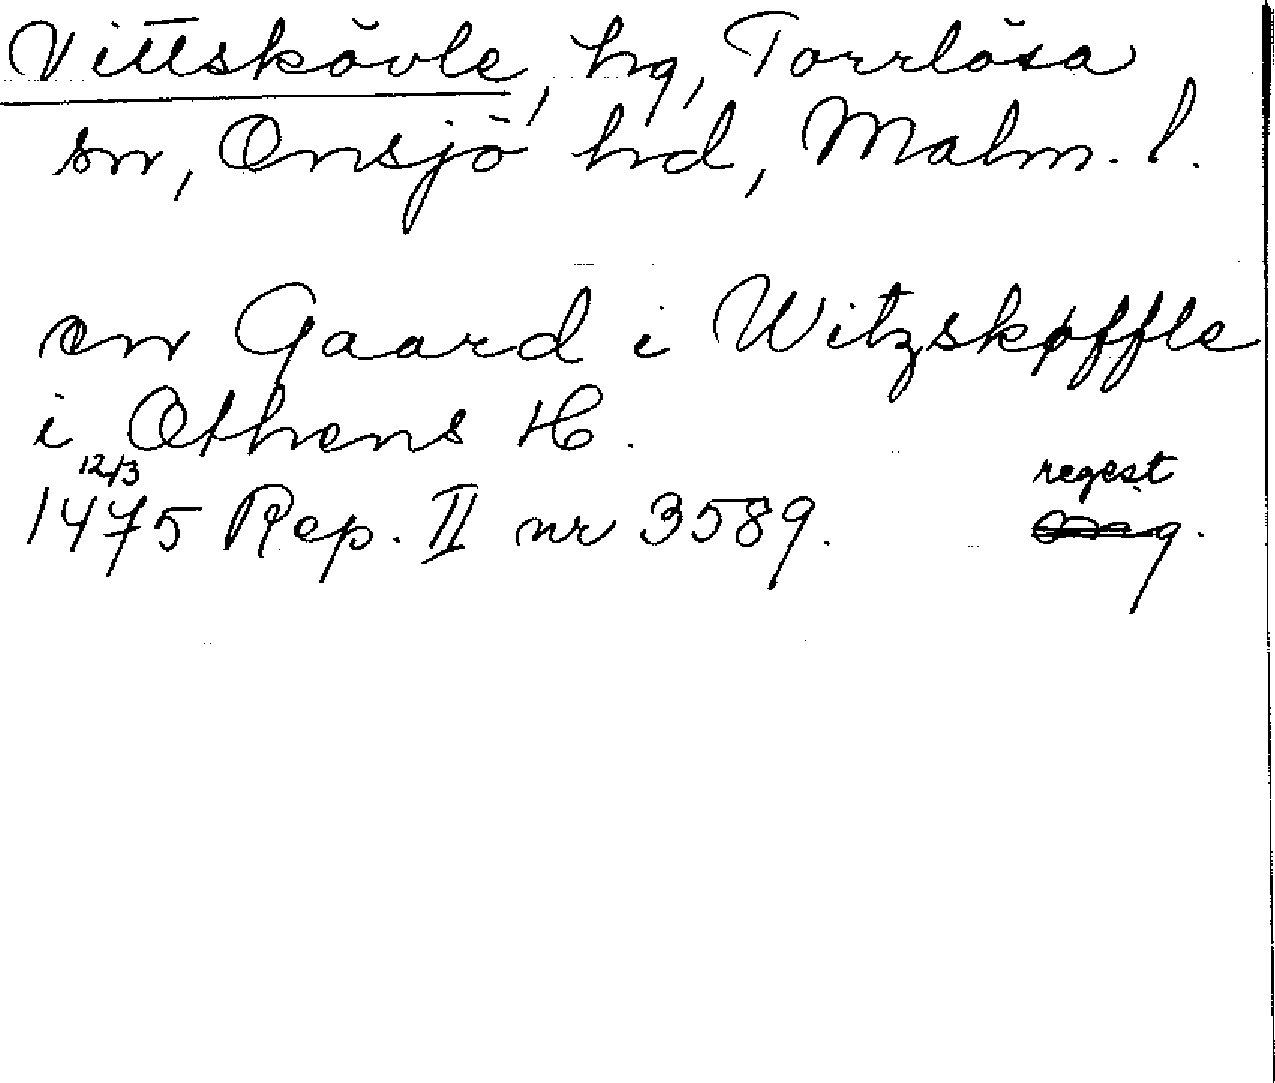 Vittskövle, hg, Torrlösa
sn, Onsjö hd, Malm. l.
en Gaard i Witzskøffle
i Othens H.
12/3
regest
1475 Rep. II nr 3589.